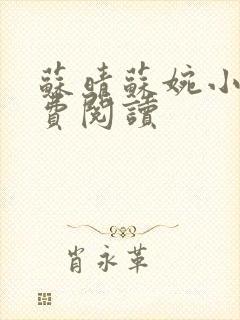 蘇晴蘇婉小
費閱讀
肖永革